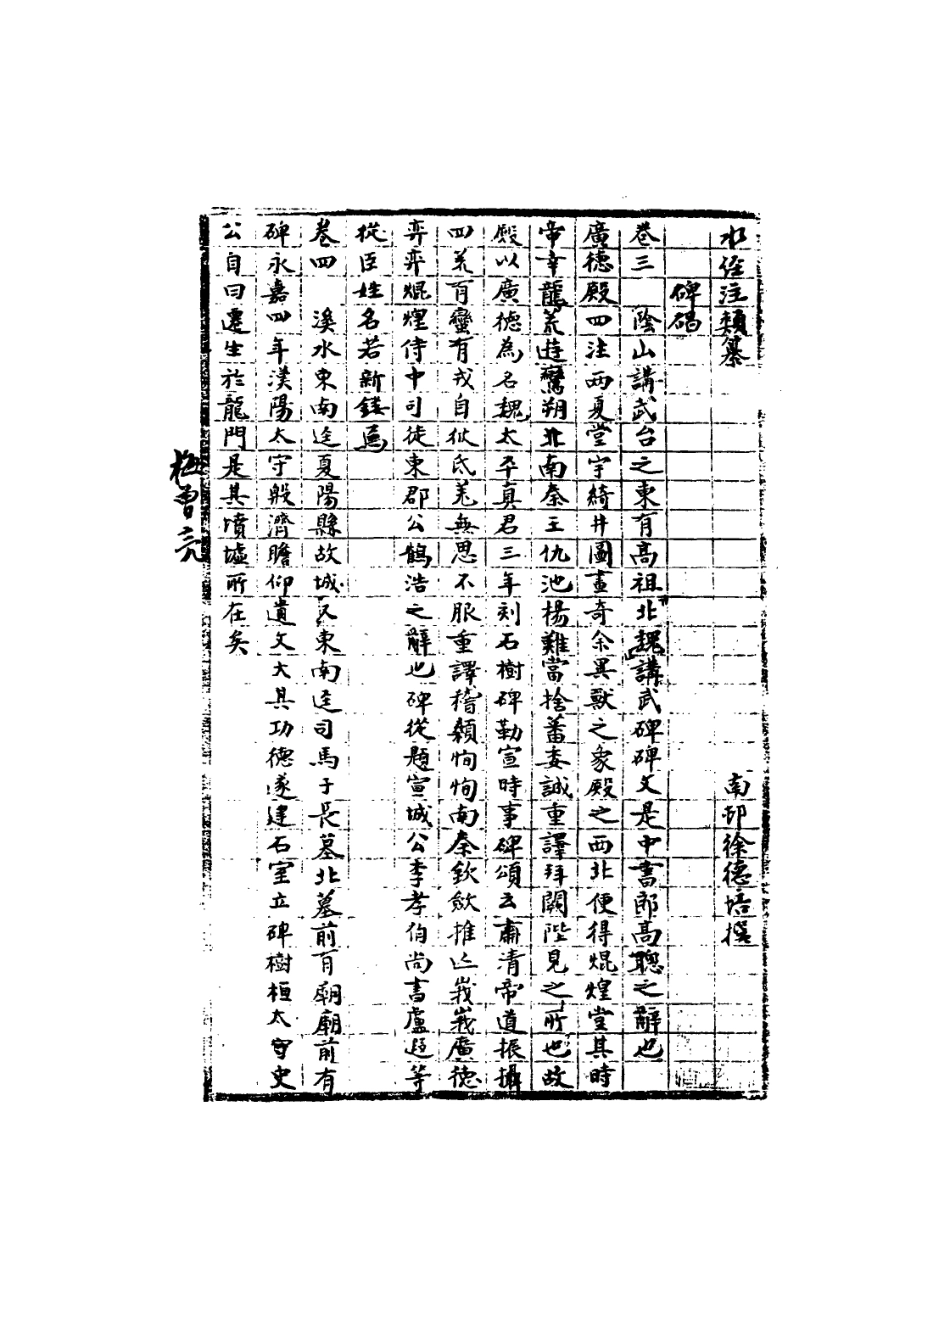 水經注類纂　南邱徐德培撰
碑碣
卷三　陰山講武台之東有高祖北魏講武碑碑文是中書郎高聰之辭也
廣德殿四注兩夏堂宇綺井圖畫奇余異獸之象殿之西北便得焜煌堂其時
帝幸龍荒遊鸞朔北南秦王仇池楊難當捨蕃委誠重譯拜闕陛見之所也故
殿以廣德為名魏太平真君三年刻石樹碑勒宣時事碑頌云肅清帝道振攝
四荒有蠻有戎自彼氐羌無思不服重譯稽顙恂恂南秦欽斂推亡峩峩廣德
弈弈焜煌侍中司徒東郡公鶴浩之辭也碑從題宣城公李孝伯尚書盧遐等
從臣姓名若新鏤焉
卷四　溪水東南逕夏陽縣故城又東南逕司馬子長墓北墓前有廟廟前有
碑永嘉四年漢陽太守般濟瞻仰遺文大其功德遂建石室立碑樹桓太守史
公自曰遷生於龍門是其墳墟所在矣
梅曾亮